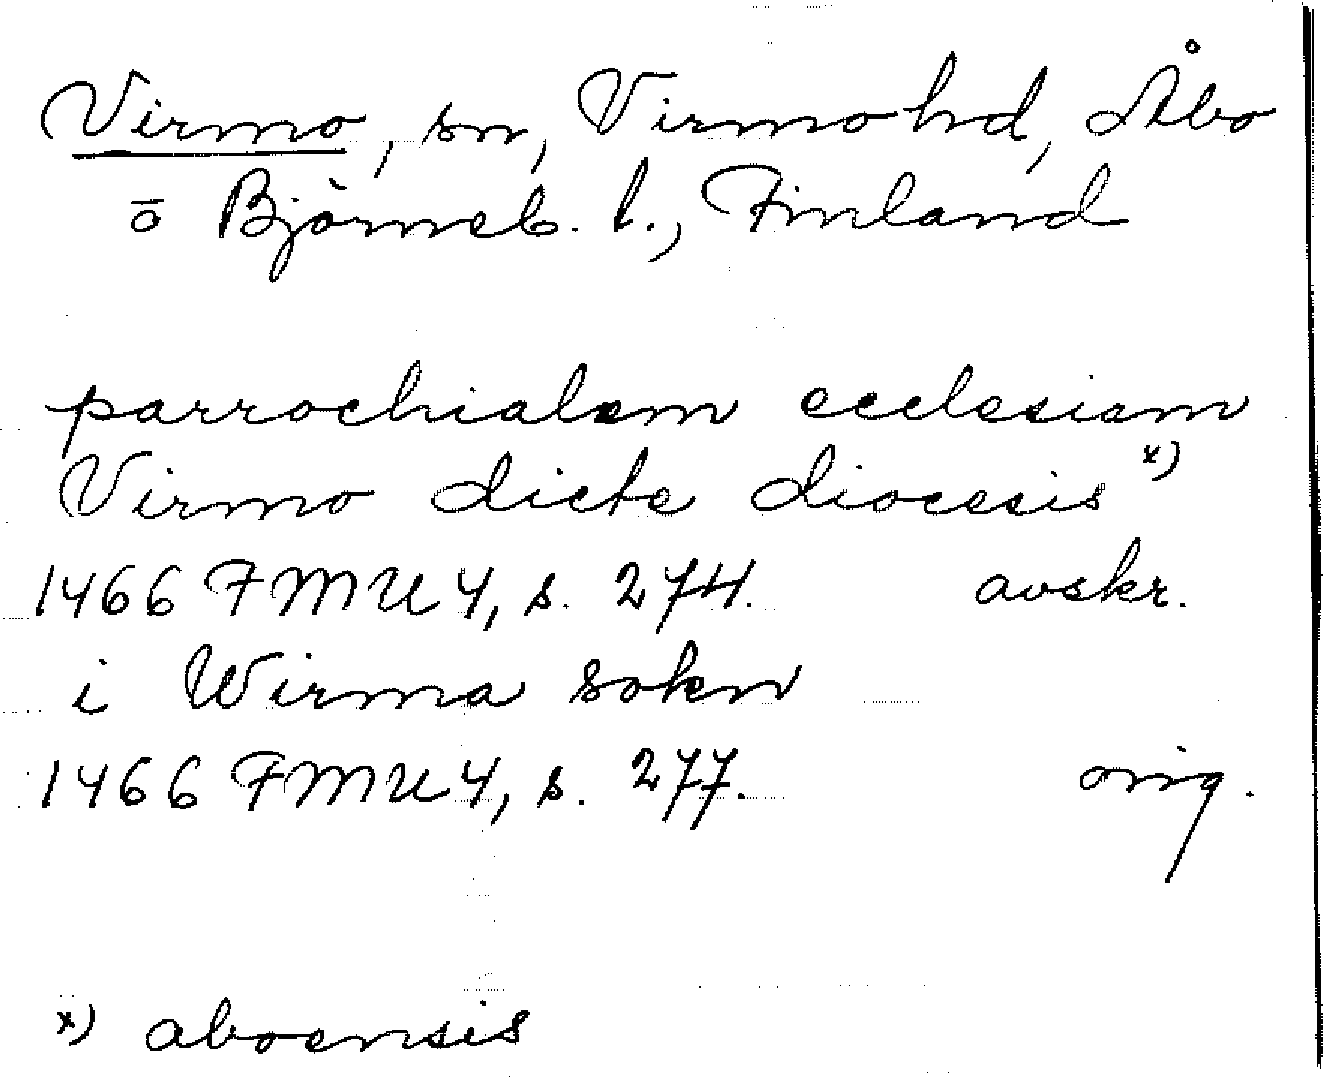 Virmo, sn, Virmo hd, Åbo
o Björneb. l., Finland
parrochialem ecclesiam
Virmo dicte diocesis x)
1466 FMU 4, s. 274. avskr.
i Wirma sokn
1466 FMU 4, s. 277. orig.
x) aboensis